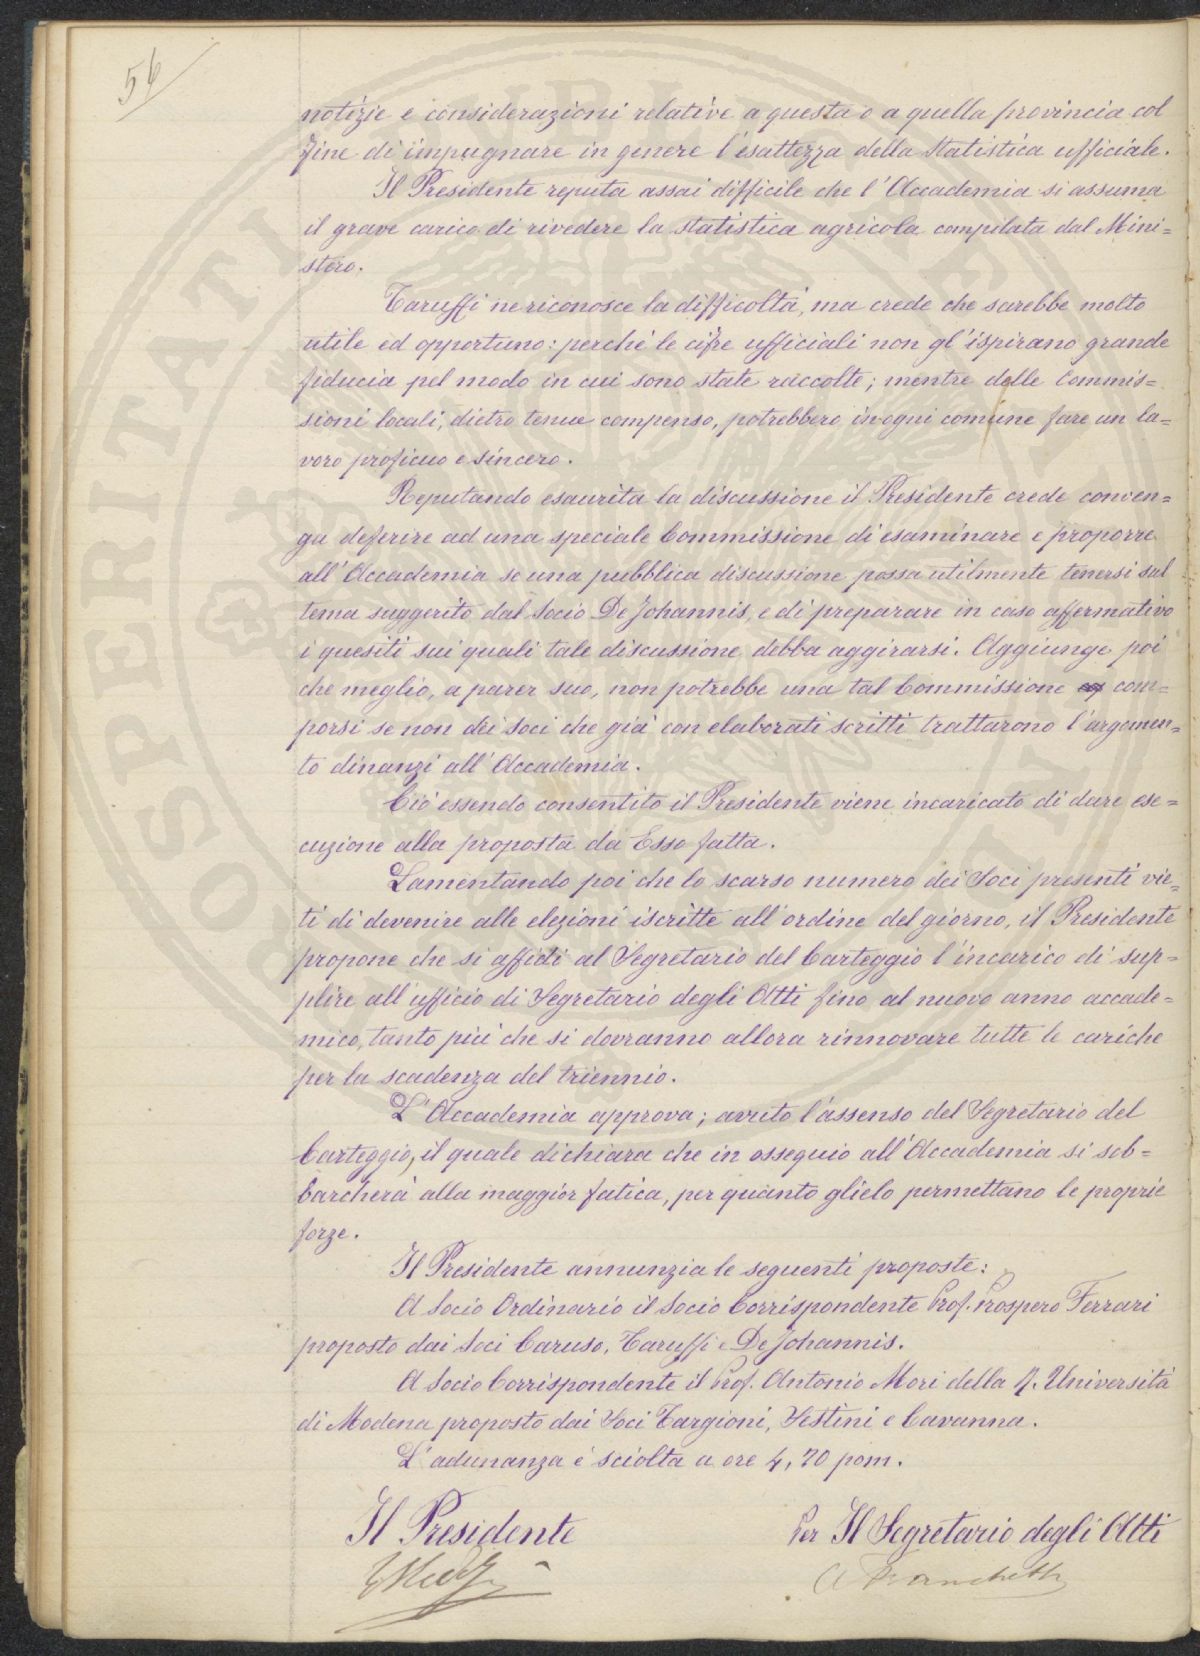 56
notizie e considerazioni relative a questa o a quella provincia col
fine di impugnare in genere l'esattezza della statistica ufficiale.
Il Presidente reputa assai difficile che l'Accademia si assuma
il grave carico di rivedere la statistica agricola compilata dal Mini=
stero.
Taruffi ne riconosce la difficoltà, ma crede che sarebbe molto
utile ed opportuno: perché le cifre ufficiali non gl'ispirano grande
fiducia pel modo in cui sono state raccolte; mentre delle Commis=
sioni locali, dietro tenue compenso, potrebbero in ogni comune fare un la=
voro proficuo e sincero.
Reputando esaurita la discussione il Presidente crede conven=
ga deferire ad una speciale Commissione di esaminare e proporre
all'Accademia se una pubblica discussione possa utilmente tenersi sul
tema suggerito dal Socio De Johannis, e di preparare in caso affermativo
i quesiti sui quali tale discussione debba aggirarsi. Aggiunge poi
che meglio, a parer suo, non potrebbe una tal Commissione com=
porsi se non dei soci che già con elaborati scritti trattarono l'argomen=
to dinanzi all'Accademia.
Ciò essendo consentito il Presidente viene incaricato di dare ese=
cuzione alla proposta da Esso fatta.
Lamentando poi che lo scarso numero dei Soci presenti vie=
ti di devenire alle elezioni iscritte all'ordine del giorno, il Presidente
propone che si affidi al Segretario del Carteggio l'incarico di sup=
plire all'ufficio di Segretario degli Atti fino al nuovo anno accade=
mico, tanto più che si dovranno allora rinnovare tutte le cariche
per la scadenza del triennio.
L'Accademia approva; avuto l'assenso del Segretario del
Carteggio, il quale dichiara che in ossequio all'Accademia si sob=
barcherà alla maggior fatica, per quanto glielo permettano le proprie
forze.
Il Presidente annunzia le seguenti proposte:
A Socio Ordinario il Socio Corrispondente Prof. Prospero Ferrari
proposto dai Soci Caruso, Taruffi e De Johannis.
A Socio Corrispondente il Prof. Antonio Mori della R. Università
di Modena proposto dai Soci Targioni, Sestini e Cavanna.
L'adunanza è sciolta a ore 4,20 pom.
Il Presidente
Per Il Segretario degli Atti
A Franchetti